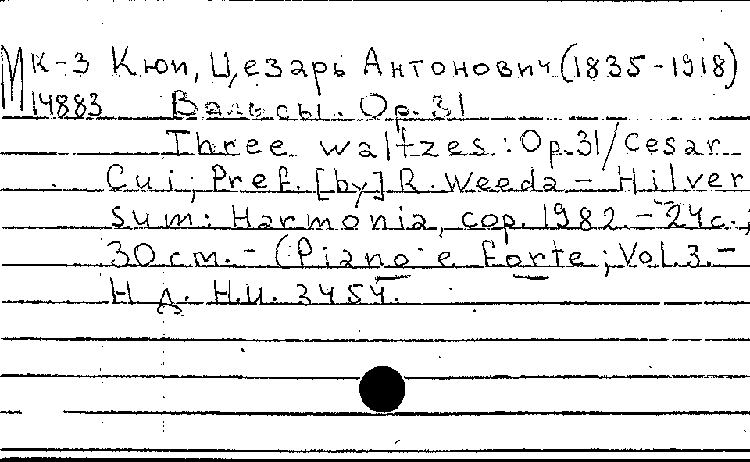 М К-3 Кюи, Цезарь Антонович (1835-1918)
14883 Вальсы. Op. 31
Three waltzes: Op.31/Cesar
Cui; Pref. [by] R. Weeda - Hilver
sum: Harmonia, cop. 1982. - 24 c.;
30 cm. - (Piano e forte; Vol. 3. -
Н д. H.U. 3454.